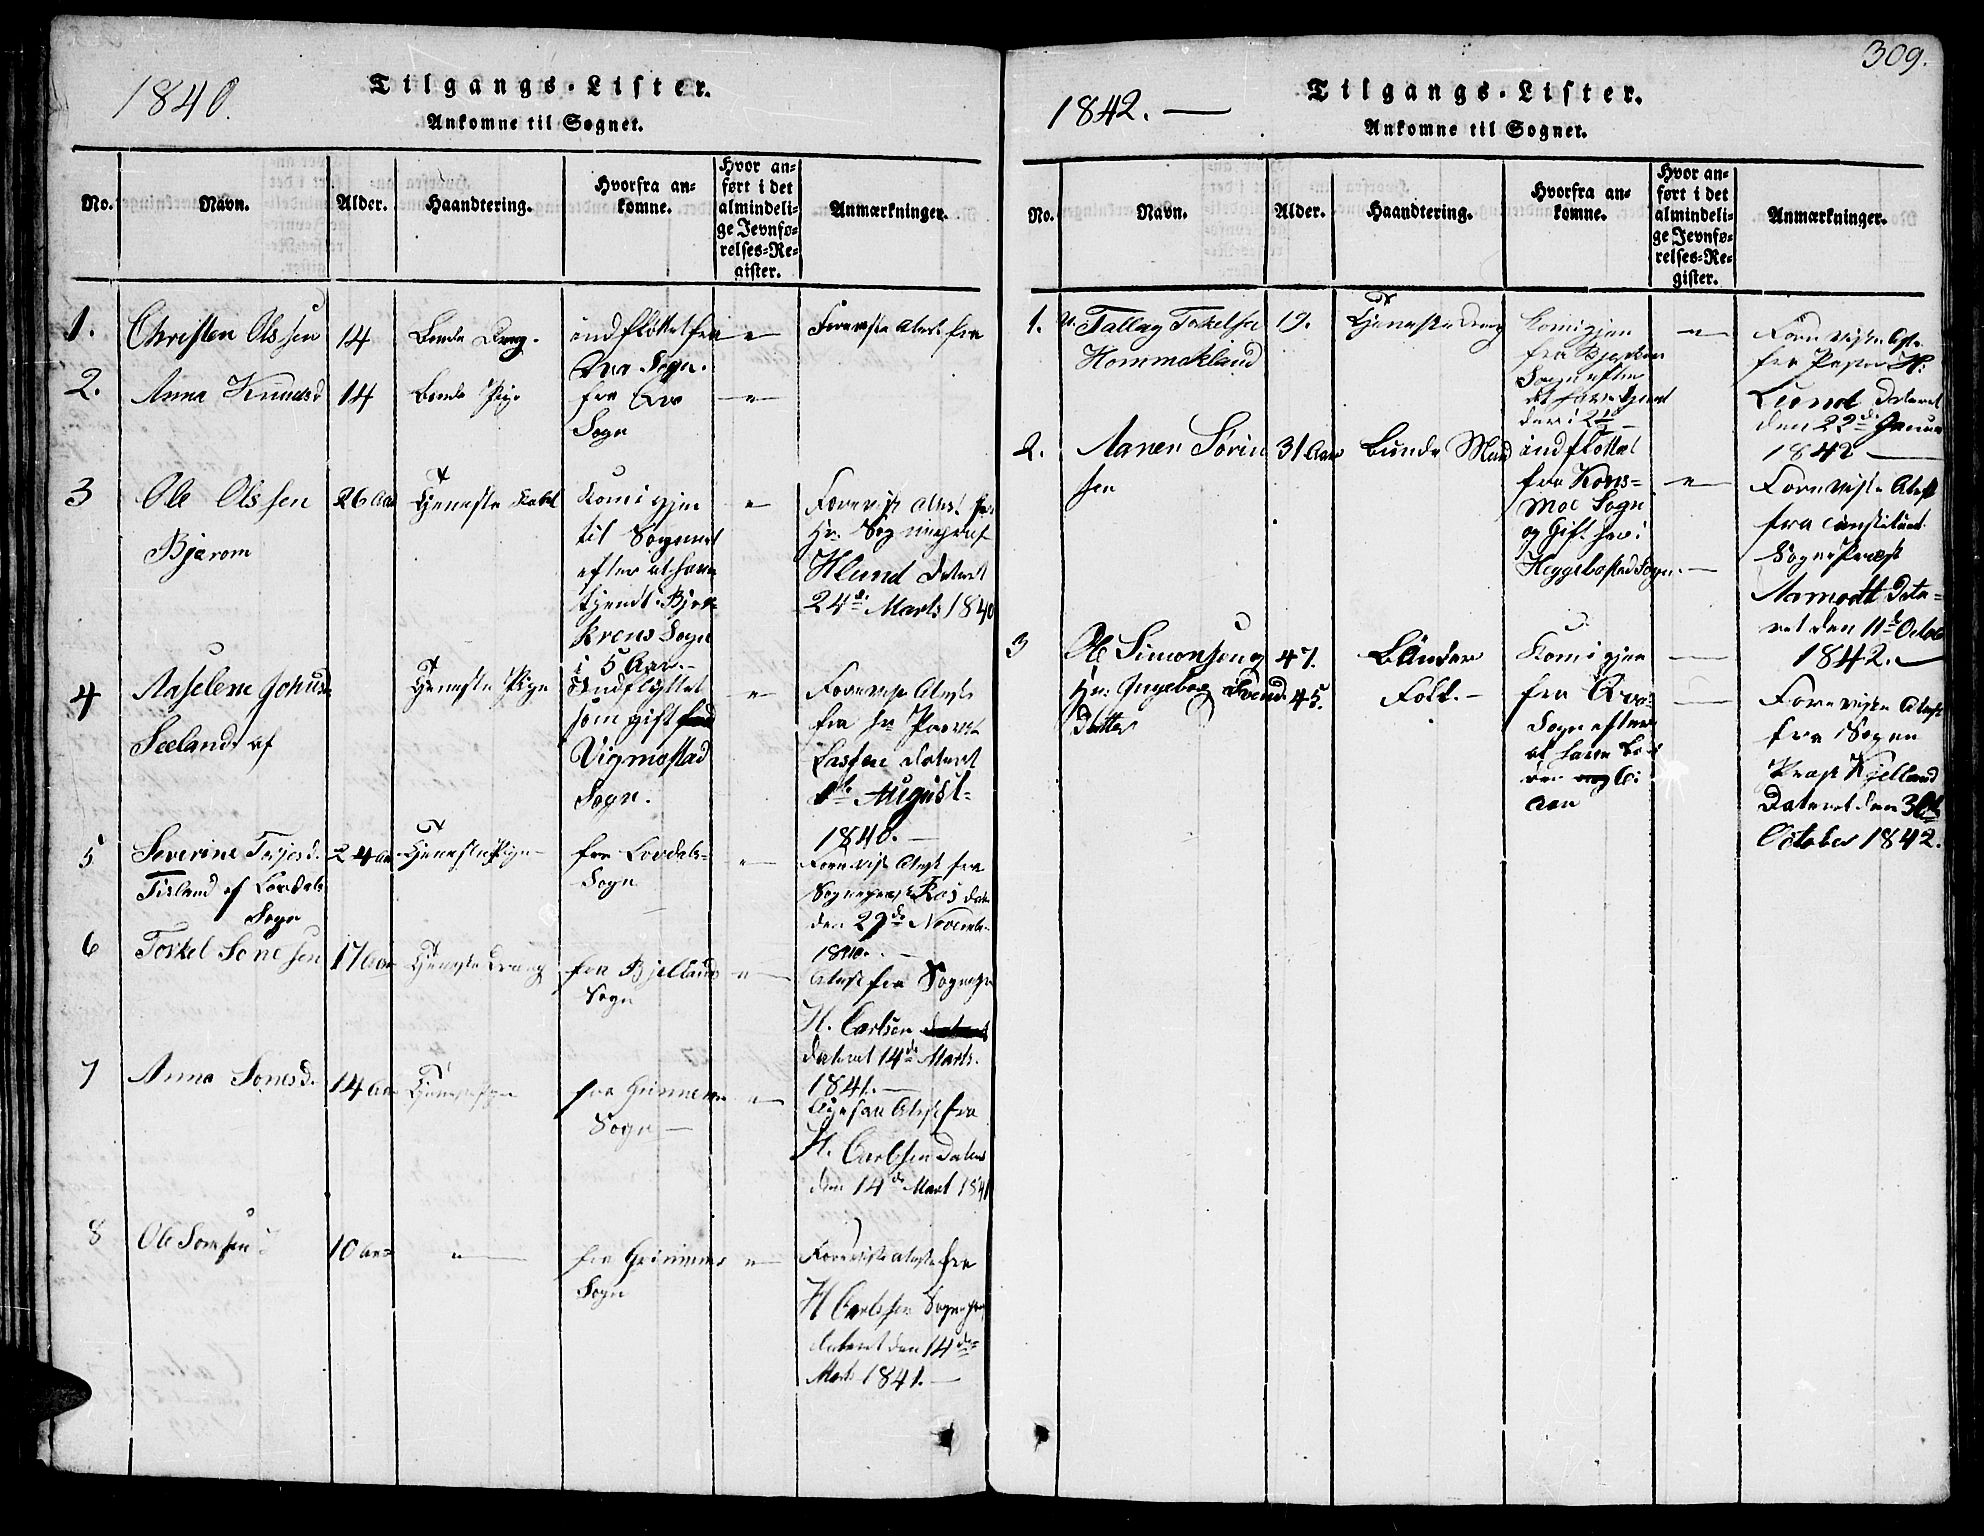 1840.
Tilgangs-Lister.
Ankomne til Sognet.
No.
Navn.
Alder.
Haandtering.
Hvorfra ankomne.
Hvor anført i det almindelige Jevnførelses-Register.
Anmærkninger.
1.
Christen Olssen
14
Bonde Dreng.
indflöttet fra
Qva Sogn.
"
Foreviste Atest fra
2.
Anna Knudsd
14
Bonde Pige
fra Qva
Sogn
"
3
Ole Olssen
Bjerom
26 Aar
Tjeneste Karl
Kom igjen
til Sognet
efter at have
tjent i
Krens Sogn
i 5 Aar.
"
Forevist Atest fra
Hr. Sognepræst
H Lund Dateret
24de Marts 1840
4
Aaselene Johnsd
Seeland af
Tjeneste Pige
Indflyttet
som gift fra
Vigmostad
Sogn.
"
Forevist Atest
fra Hr Pastor
Lassen Dateret
August
1840.
5
Severine Terjesd.
Tisland af Lovdals
Sogn
24 Aar
Tjeneste Pige
fra Lovdals
Sogn
"
Forevist Atest fra
Sognepræst
den 29de Novemb.
1840.
6
Torkel Sonesen
17 Aar
Tjeneste Dreng
fra Bjelland
Sogn
"
Atest fra Sognepr
H. Carlsen
dateret 14de Marts
1841.
7
Anna Sonesd.
14 Aar
fra
Sogn
"
Atest fra
H. Carlsen Dateret
den 14de Mart 1841
8
Ole Sonesen
10 Aar
"
fra
Sogn
"
Foreviste Atest fra
H Carlssen Sognepr
dateret den 14de
Marts 1841.
309.
1842.
Tilgangs-Lister.
Ankomne til Sognet.
No.
Navn.
Alder.
Haandtering.
Hvorfra ankomne.
Hvor anført i det almindelige Jevnførelses-Register.
Anmærkninger.
1.
Tallag Torkelsen
Hommekland
19.
Tjeneste dreng
Kom igjen
fra
Sogn efter
at have tjent
der i
"
Foreviste Atest
fra Pastor H.
Lund Dateret
den 22de Januar
1842
2.
Aanen Sörin
sen
31 Aar
Bonde Mand
indflöttet
fra Kons=
moe Sogn
og Gift her i
Heggebostad Sogn.
"
Foreviste Atest
fra constitueret
Sognepræst
Aamodt Date=
ret den 11te Octob
1842.
3
Ole Simonsen og
Hr. Ingeborg Svends
Datter
47.
45.
Bönder
Folk.
Kom igjen
fra Qva
Sogn efter
at have
6
Aar
Foreviste Atest
fra Sogne
Præst Kjelland
Dateret den 30te
October 1842.